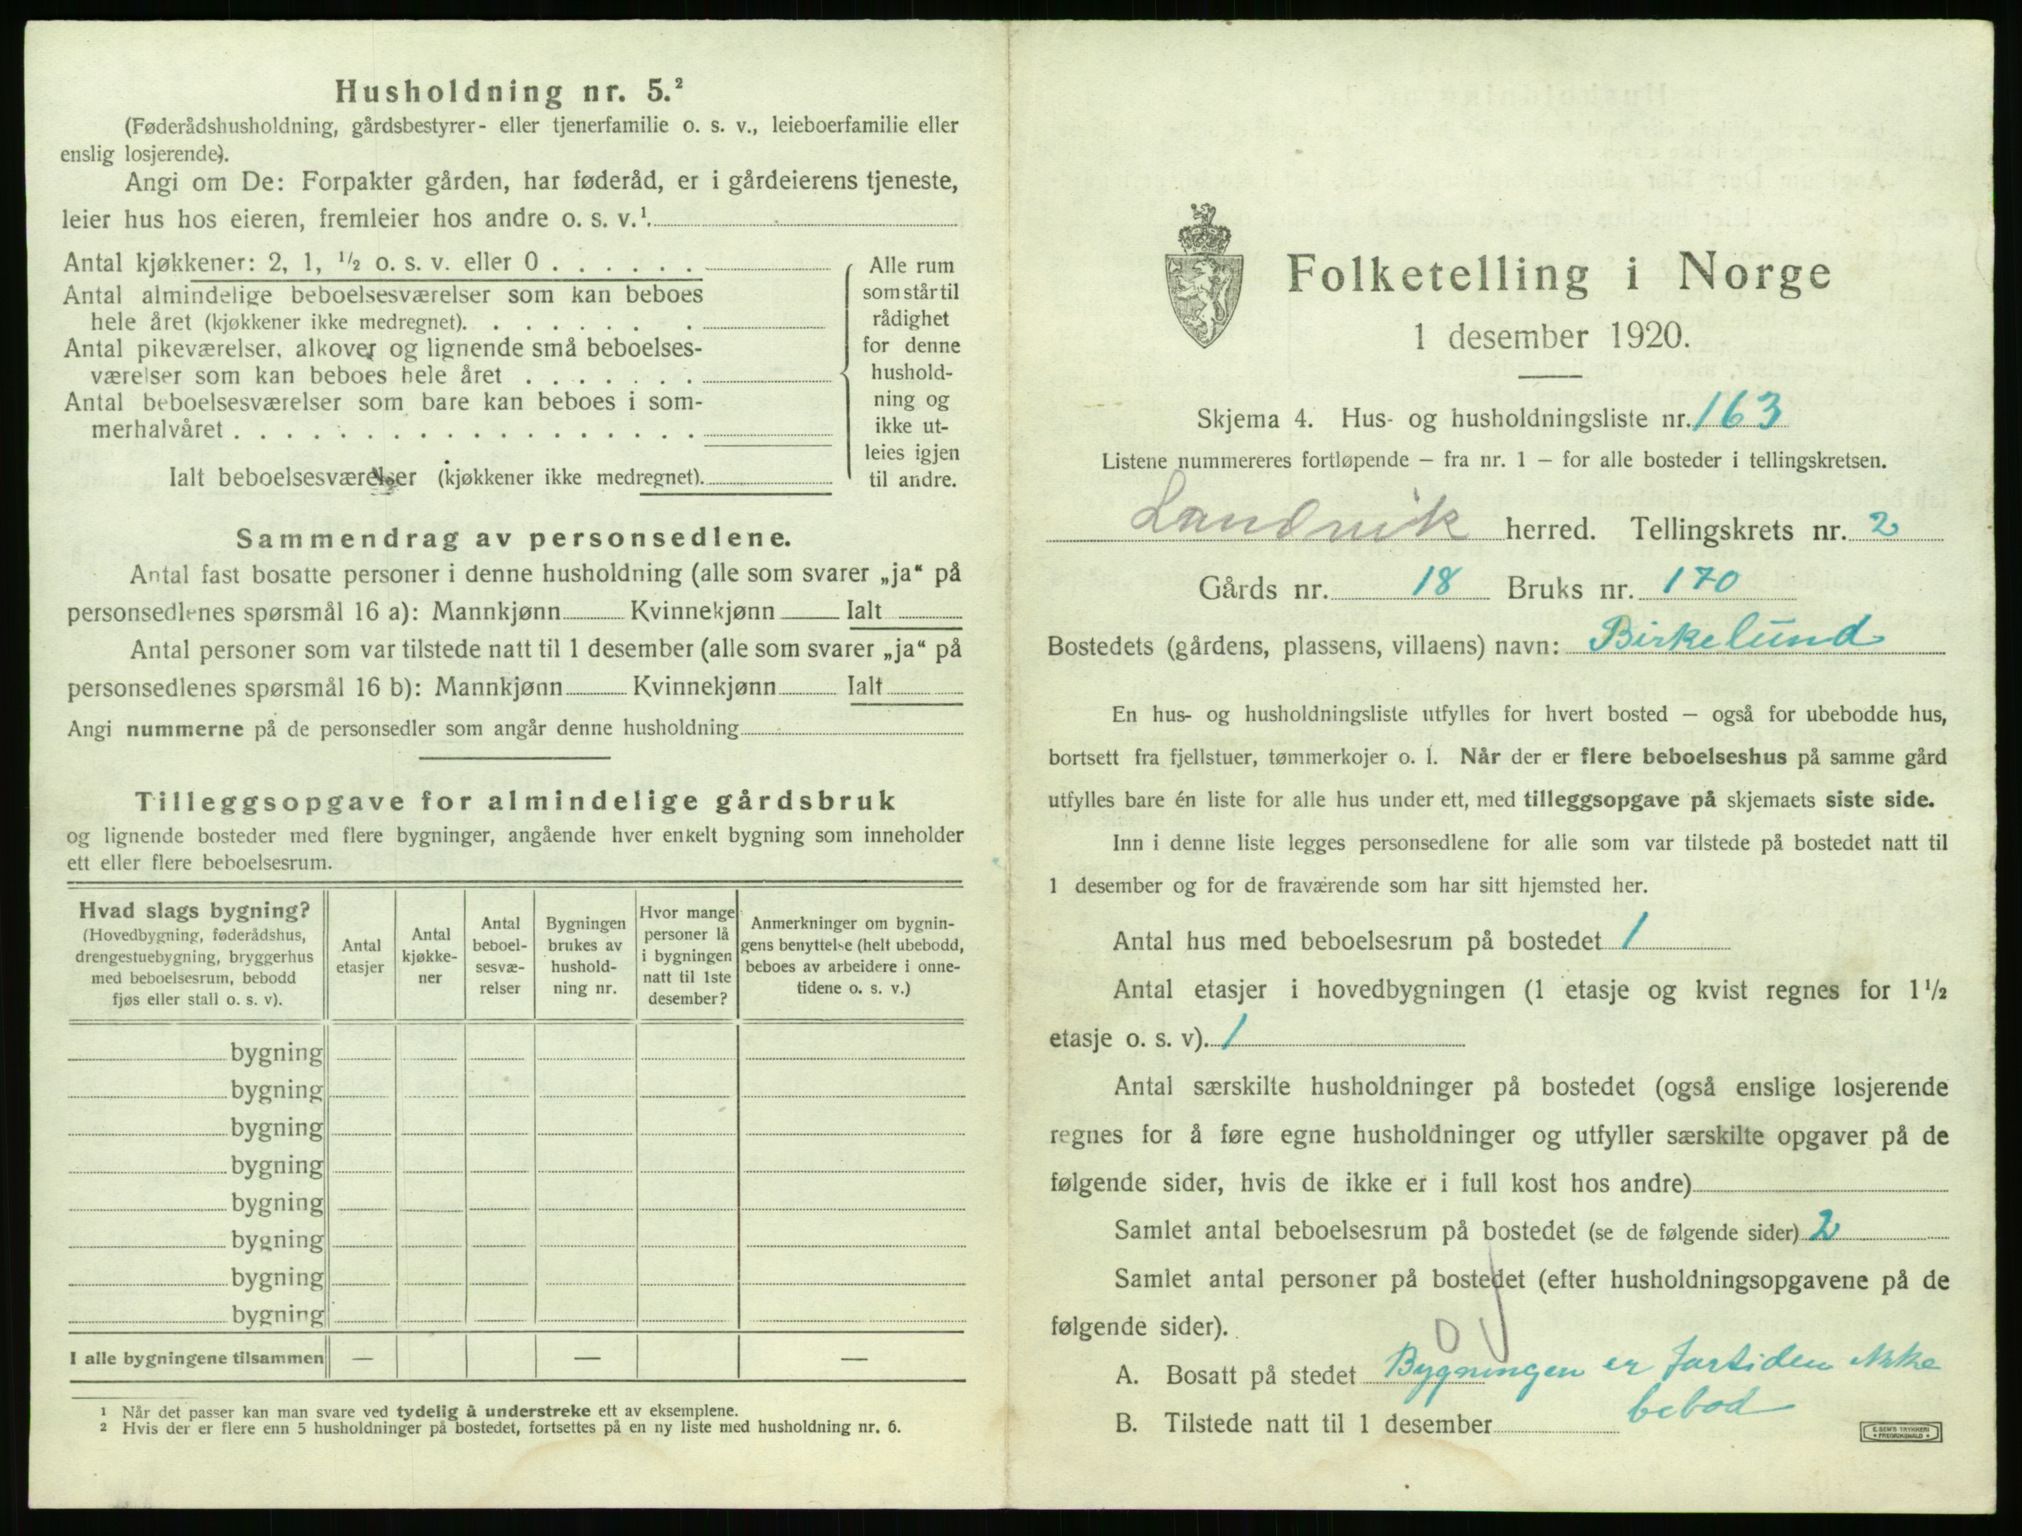 Husholdning nr. 5.²
(Føderådshusholdning, gårdsbestyrer- eller tjenerfamilie o. s. v., leieboerfamilie eller
enslig losjerende).
Angi om De: Forpakter gården, har føderåd, er i gårdeierens tjeneste,
leier hus hos eieren, fremleier hos andre o. s. v.¹
Antal kjøkkener: 2, 1, ½ o. s. v. eller 0 . . . . . .
Antal almindelige beboelsesværelser som kan beboes
hele året (kjøkkener ikke medregnet). . . . . . . .
Antal pikeværelser, alkover og lignende små beboelses-
værelser som kan beboes hele året . . . . . . .
Antal beboelsesværelser som bare kan beboes i som-
merhalvåret . . . . . . . . . . . . . . . . . .
Ialt beboelsesværelser (kjøkkener ikke medregnet).
Alle rum
som står til
rådighet
for denne
hushold-
ning og
ikke ut-
leies igjen
til andre.
Sammendrag av personsedlene.
Antal fast bosatte personer i denne husholdning (alle som svarer „ja“ på
personsedlenes spørsmål 16 a): Mannkjønn Kvinnekjønn Ialt
Antal personer som var tilstede natt til 1 desember (alle som svarer „ja“ på
personsedlenes spørsmål 16 b): Mannkjønn Kvinnekjønn Ialt
Angi nummerne på de personsedler som angår denne husholdning
Tilleggsopgave for almindelige gårdsbruk
og lignende bosteder med flere bygninger, angående hver enkelt bygning som inneholder
ett eller flere beboelsesrum.
Hvad slags bygning?
(Hovedbygning, føderådshus,
drengestuebygning, bryggerhus
med beboelsesrum, bebodd
fjøs eller stall o. s. v).
Antal
etasjer
Antal
kjøkke-
ner
Antal
beboel-
sesvæ-
relser
Bygningen
brukes av
hushold-
ning nr.
Hvor mange
personer lå
i bygningen
natt til 1ste
desember?
Anmerkninger om bygnin-
gens benyttelse (helt ubebodd,
beboes av arbeidere i onne-
tidene o. s. v.)
bygning
bygning
bygning
bygning
bygning
bygning
bygning
bygning
I alle bygningene tilsammen — — —
¹ Når det passer kan man svare ved tydelig å understreke ett av eksemplene.
² Hvis der er flere enn 5 husholdninger på bostedet, fortsettes på en ny liste med husholdning nr. 6.
Folketelling i Norge
1 desember 1920.
Skjema 4. Hus- og husholdningsliste nr. 163
Listene nummereres fortløpende – fra nr. 1 – for alle bosteder i tellingskretsen.
Landvik herred. Tellingskrets nr. 2
Gårds nr. 18 Bruks nr. 170
Bostedets (gårdens, plassens, villaens) navn: Birkelund
En hus- og husholdningsliste utfylles for hvert bosted – også for ubebodde hus,
bortsett fra fjellstuer, tømmerkojer o. l. Når der er flere beboelseshus på samme gård
utfylles bare én liste for alle hus under ett, med tilleggsopgave på skjemaets siste side.
Inn i denne liste legges personsedlene for alle som var tilstede på bostedet natt til
1 desember og for de fraværende som har sitt hjemsted her.
Antal hus med beboelsesrum på bostedet 1
Antal etasjer i hovedbygningen (1 etasje og kvist regnes for 1½
etasje o. s. v). 1
Antal særskilte husholdninger på bostedet (også enslige losjerende
regnes for å føre egne husholdninger og utfyller særskilte opgaver på de
følgende sider, hvis de ikke er i full kost hos andre)
Samlet antal beboelsesrum på bostedet (se de følgende sider) 2
Samlet antal personer på bostedet (efter husholdningsopgavene på de
følgende sider). 0
A. Bosatt på stedet Bygningen er fortiden ikke
bebod
B. Tilstede natt til 1 desember
E. SEM'S TRYKKERI
FREDRIKSHALD